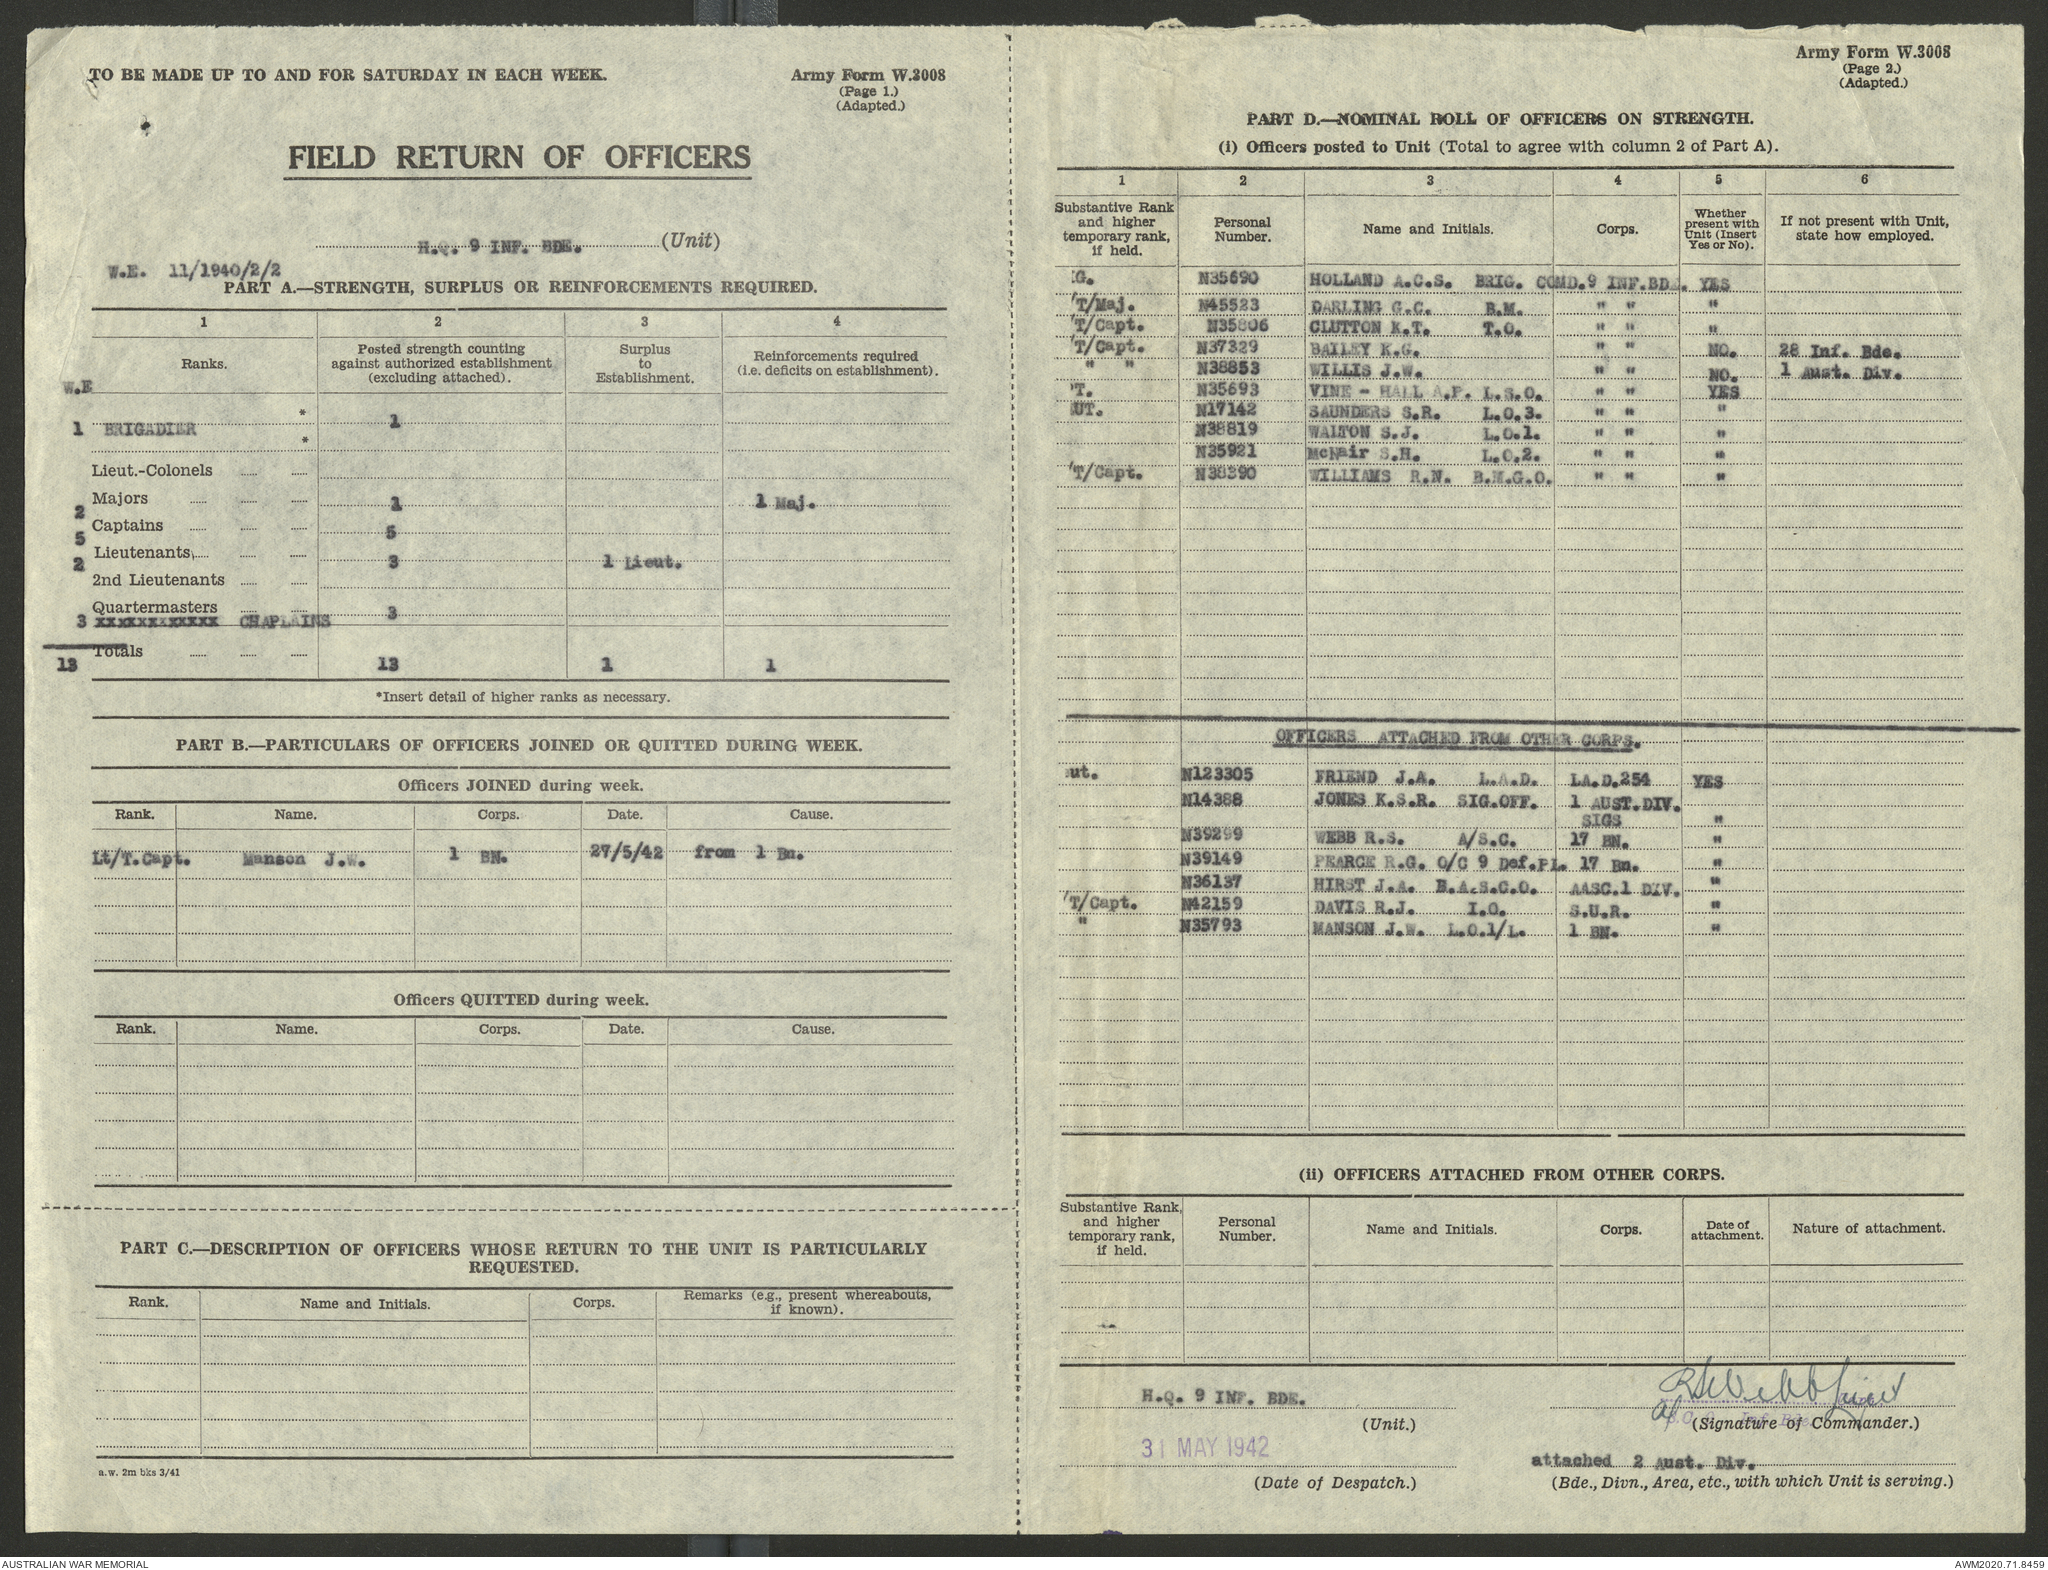 TO BE MADE UP TO AND FOR SATURDAY IN EACH WEEK.
Army Form W.3008
(Page 1.)
(Adapted.)
FIELD RETURN OF OFFICERS
H.Q. 9 INF. BDE. (Unit)
W.E. 11/1940/2/2
PART A.—STRENGTH, SURPLUS OR REINFORCEMENTS REQUIRED.
1 2 3 4
Ranks. Posted strength counting against authorized establishment (excluding attached). Surplus to Establishment. Reinforcements required (i.e. deficits on establishment).
W.E
*
1 BRIGADIER 1
*
Lieut.-Colonels
Majors 1 1 Maj.
2
Captains 5
5
Lieutenants 3 1 Lieut.
2
2nd Lieutenants
Quartermasters 3
3 xxxxxxxxxxxx CHAPLAINS
Totals
13 13 1 1
*Insert detail of higher ranks as necessary.
PART B.—PARTICULARS OF OFFICERS JOINED OR QUITTED DURING WEEK.
Officers JOINED during week.
Rank. Name. Corps. Date. Cause.
Lt/T.Capt. Manson J.W. 1 BN. 27/5/42 from 1 Bn.
Officers QUITTED during week.
Rank. Name. Corps. Date. Cause.
PART C.—DESCRIPTION OF OFFICERS WHOSE RETURN TO THE UNIT IS PARTICULARLY
REQUESTED.
Rank. Name and Initials. Corps. Remarks (e.g., present whereabouts, if known).
a.w. 2m bks 3/41
Army Form W.3008
(Page 2.)
(Adapted.)
PART D.—NOMINAL ROLL OF OFFICERS ON STRENGTH.
(i) Officers posted to Unit (Total to agree with column 2 of Part A).
1 2 3 4 5 6
Substantive Rank and higher temporary rank, if held. Personal Number. Name and Initials. Corps. Whether present with Unit (Insert Yes or No). If not present with Unit, state how employed.
G. N35690 HOLLAND A.C.S. BRIG. COMD.9 INF.BDE. YES
'T/Maj. N45523 DARLING G.C. B.M. " " "
'T/Capt. N35806 CLUTTON K.T. T.O. " " "
'T/Capt. N37329 BAILEY K.G. " " NO. 28 Inf. Bde.
" " N38853 WILLIS J.W. " " NO. 1 Aust. Div.
'T. N35693 VINE - HALL A.P. L.S.O. " " YES
UT. N17142 SAUNDERS S.R. L.O.3. " " "
N38819 WALTON S.J. L.O.1. " " "
N35921 McNair S.H. L.O.2. " " "
'T/Capt. N38390 WILLIAMS R.N. B.M.G.O. " " "
OFFICERS ATTACHED FROM OTHER CORPS.
ut. N123305 FRIEND J.A. L.A.D. LA.D.254 YES
N14388 JONES K.S.R. SIG.OFF. 1 AUST.DIV.
SIGS "
N39299 WEBB R.S. A/S.C. 17 BN. "
N39149 PEARCE R.G. O/C 9 Def.PL. 17 Bn. "
N36137 HIRST J.A. B.A.S.C.O. AASC.1 DIV. "
'T/Capt. N42159 DAVIS R.J. I.O. S.U.R. "
" N35793 MANSON J.W. L.O.1/L. 1 BN. "
(ii) OFFICERS ATTACHED FROM OTHER CORPS.
Substantive Rank, and higher temporary rank, if held. Personal Number. Name and Initials. Corps. Date of attachment. Nature of attachment.
H.Q. 9 INF. BDE. RS Webb Lieut
(Unit.) (Signature of Commander.)
31 MAY 1942 attached 2 Aust. Div.
(Date of Despatch.) (Bde., Divn., Area, etc., with which Unit is serving.)
AUSTRALIAN WAR MEMORIAL
AWM2020.71.8459